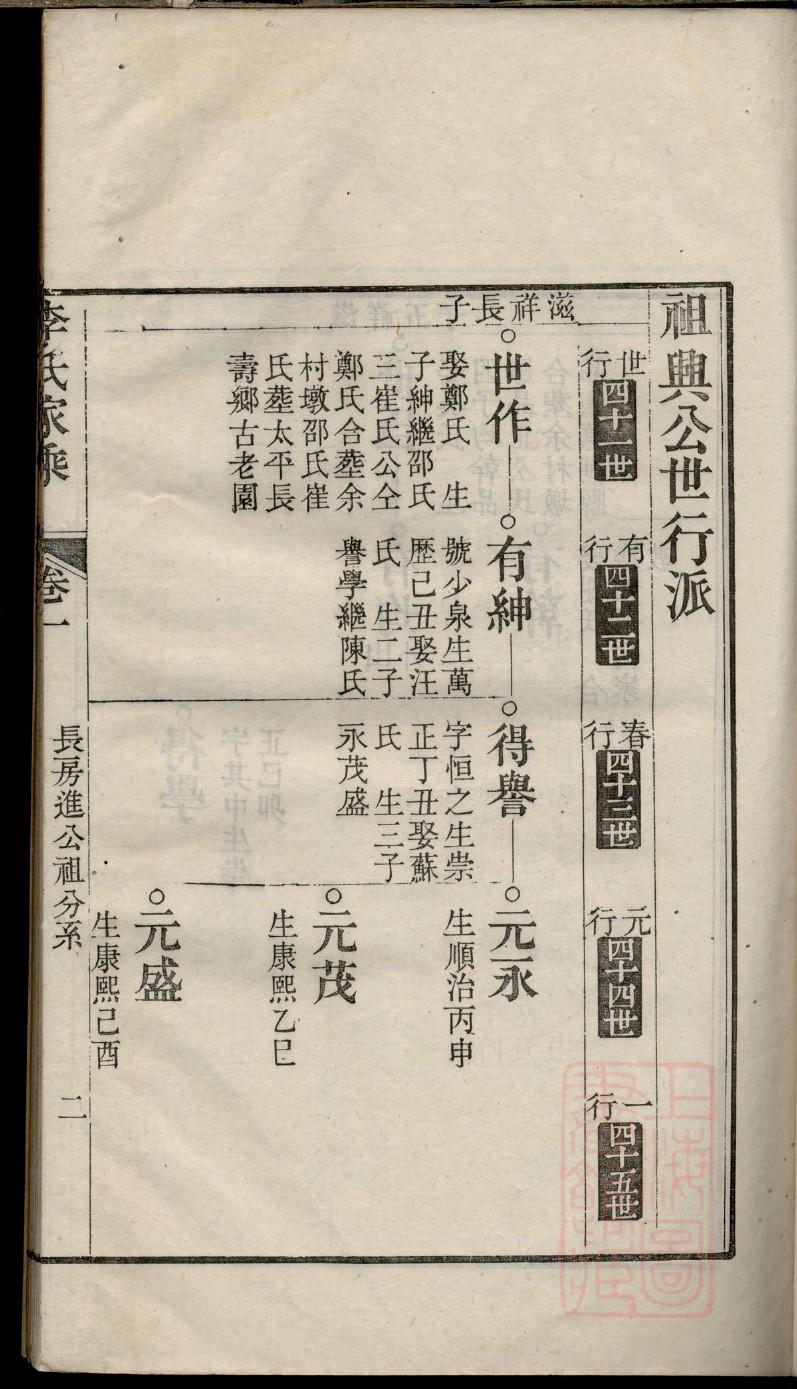 祖興公世行派
世行
四十一世
有行
四十二世
春行
四十三世
元行
四十四世
一行
四十五世
滋祥長子
世作
娶鄭氏　生
子紳繼邵氏
三崔氏公仝
鄭氏合塟余
村墩邵氏崔
氏塟太平長
壽鄉古老園
有紳
號少泉生萬
歷己丑娶汪
氏　生二子
譽學繼陳氏
得譽
字恒之生崇
正丁丑娶蘇
氏　生三子
永茂盛
元永
生順治丙申
元茂
生康熙乙巳
元盛
生康熙己酉
李氏家乘
卷一
長房進公祖分系
二